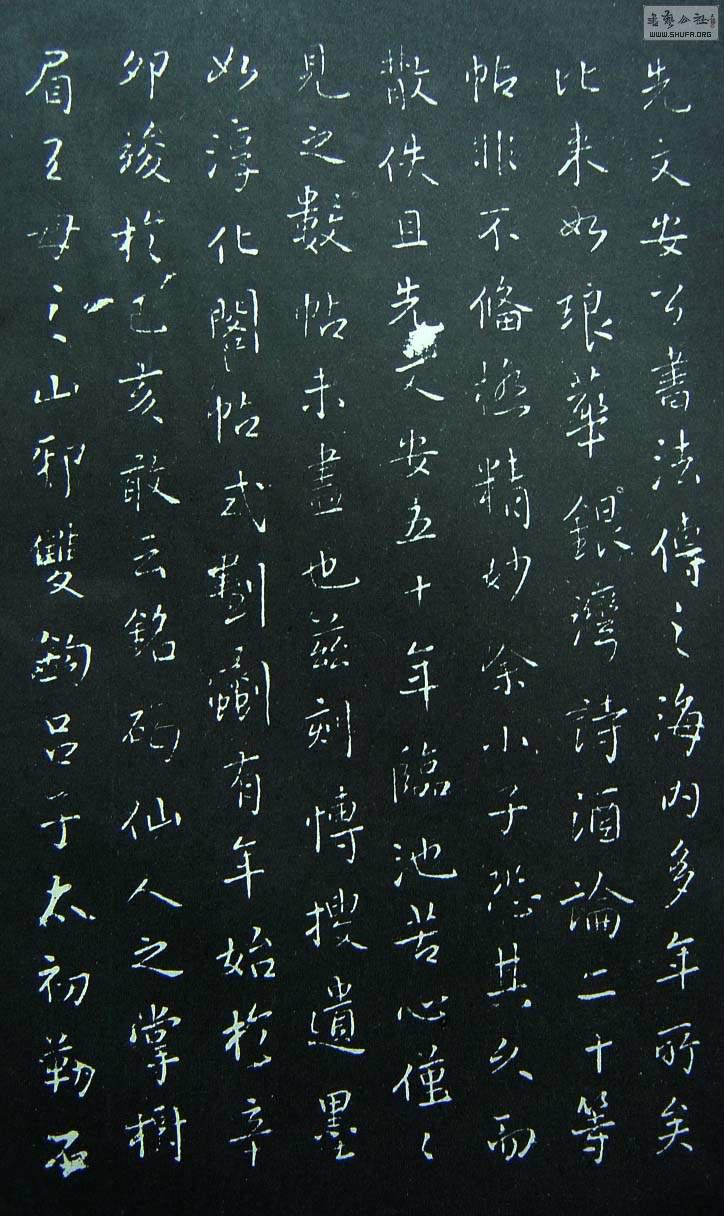 先文安公書法傳之海內多年所矣
比來如琅華銀灣詩酒論二十等
帖非不備極精妙余小子恐其久而
散佚且先文安五十年臨池苦心僅〻
見之數帖未盡也茲刻博搜遺墨
如淳化閣帖式劃劙有年始於辛
卯竣於己亥敢云銘碣仙人之掌樹
眉王母之山邪雙鉤呂子太初勒石
書藝公社
WWW.SHUFA.ORG